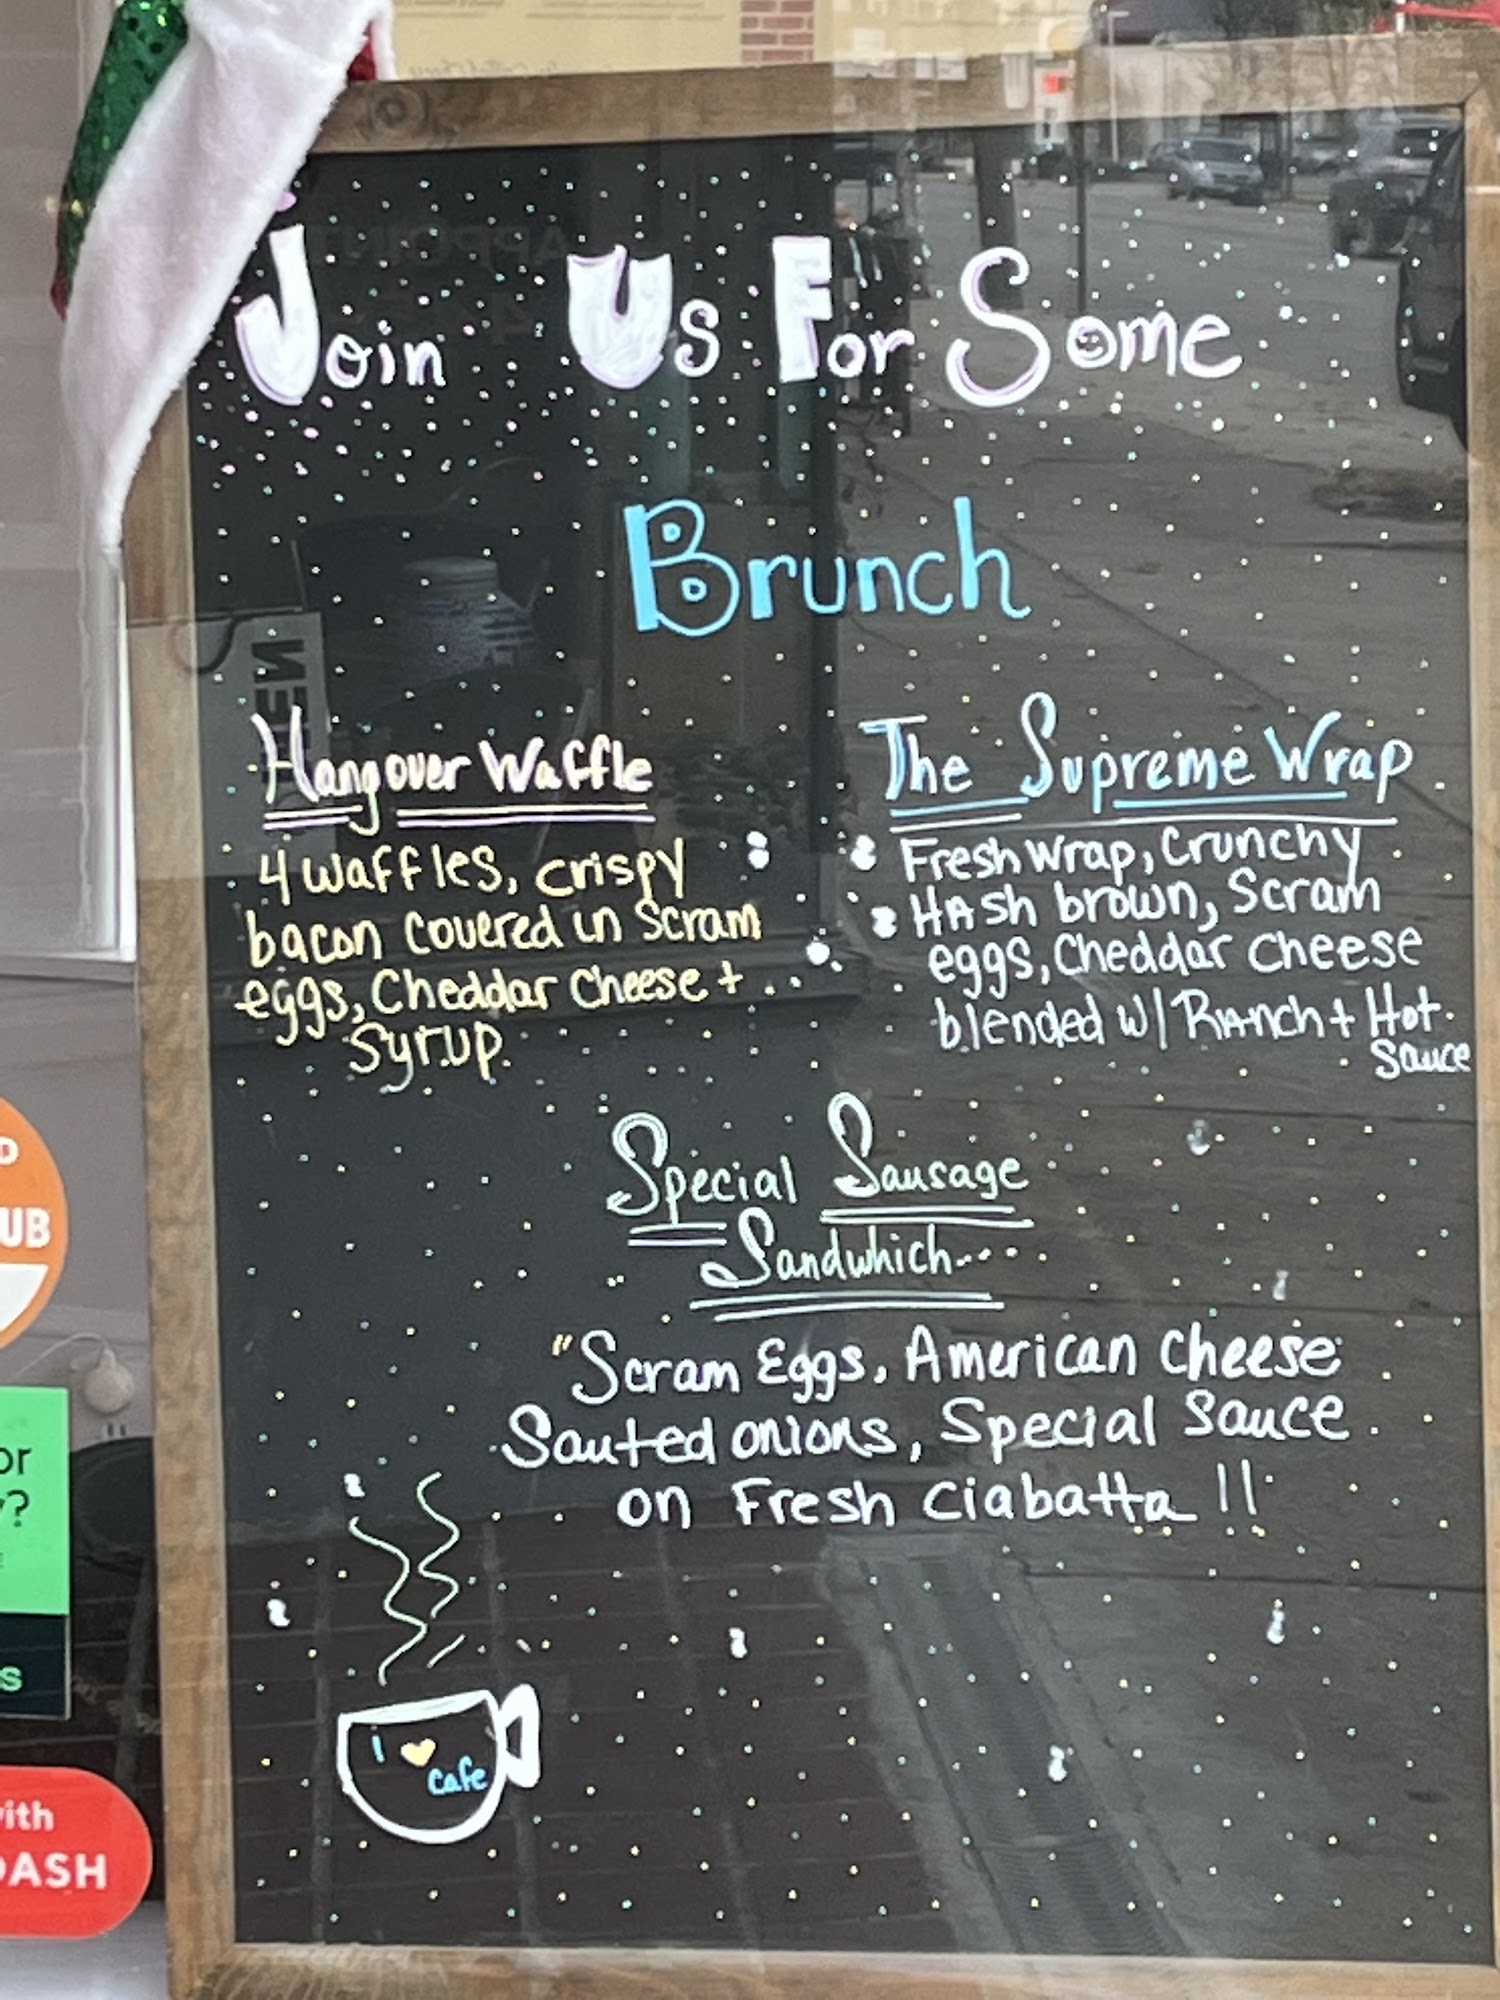 Join Us For Some
Brunch
Hangover Waffle
4 waffles, crispy
bacon covered in scram
eggs, Cheddar Cheese +
syrup.
The Supreme Wrap
Fresh wrap, Crunchy
HAsh brown, Scram
eggs, Cheddar Cheese
blended w/ RANch + Hot
Sauce
Special Sausage
Sandwhich...
"Scram Eggs, American Cheese
Sauted onions, Special Sauce
on Fresh Ciabatta !!
I
cafe
UB
or
?
s
with
DASH